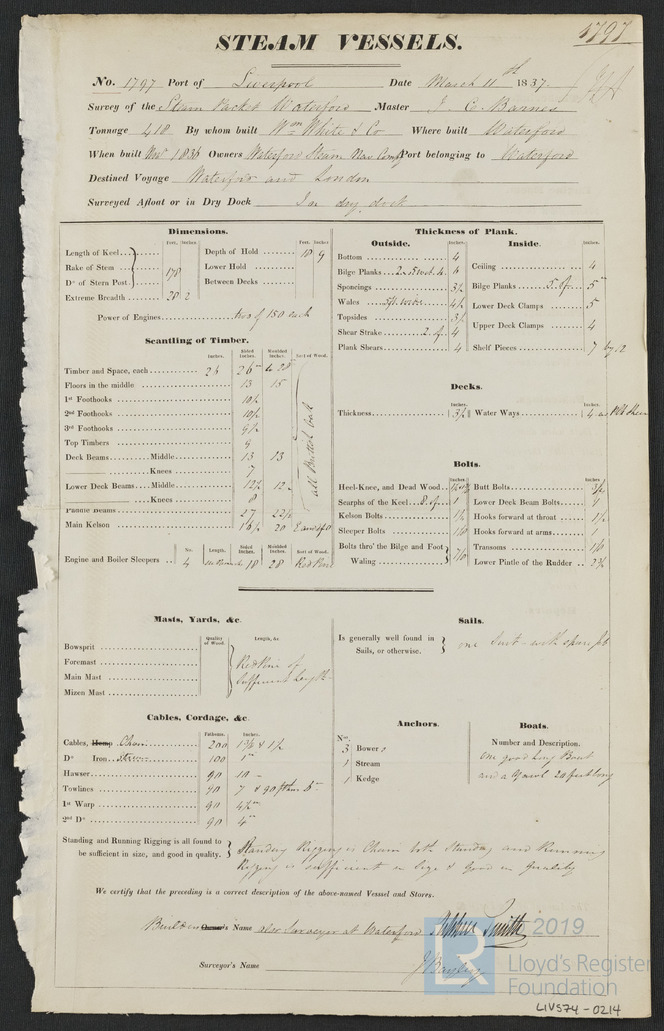 1797
STEAM VESSELS.
No. 1797 Port of Liverpool Date March 11th 1837.
Survey of the Steam Packet Waterford Master J. C. Barnes
Tonnage 418 By whom built Wm White & Co Where built Waterford
When built Novr 1836 Owners Waterford Steam Nav Compy Port belonging to Waterford
Destined Voyage Waterford and London
Surveyed Afloat or in Dry Dock In dry dock
Dimensions.
Feet. Inches
Length of Keel
Rake of Stem
Do of Stern Post
178
Extreme Breadth 28 2
Feet Inches
Depth of Hold 18 9
Lower Hold
Between Decks
Power of Engines two of 150 each
Scantling of Timber.
Inches. Sided Inches. Moulded Inches. Sort of Wood.
Timber and Space, each 24 26
Floors in the middle 13 15
1st Foothooks 10½
2nd Foothooks 10½
3rd Foothooks 9½
Top Timbers 9
Deck Beams Middle 13 13
Knees 7
Lower Deck Beams Middle 12½ 12
Knees 8
Paddle Beams 27 22½
Main Kelson 16½ 20
all British Oak
No. Length. Sided Inches. Moulded Inches. Sort of Wood.
Engine and Boiler Sleepers 4 18 28 Red Pine
Thickness of Plank.
Outside. Inches
Bottom 4
Bilge Planks 6
Sponcings 3½
Wales 4½
Topsides 3½
Shear Strake 2 of 4
Plank Shears 4
Inside. Inches.
Ceiling 4
Bilge Planks 5 of 5
Lower Deck Clamps 5
Upper Deck Clamps 4
Shelf Pieces 7 by 12
Decks.
Inches.
Thickness 3½
Inches.
Water Ways 4
Bolts.
Inches
Heel-Knee, and Dead Wood
Scarphs of the Keel 8 of 1
Kelson Bolts 1½
Sleeper Bolts 1⅛
Bolts thro' the Bilge and Foot Waling 7/8
Inches
Butt Bolts ¾
Lower Deck Beam Bolts
Hooks forward at throat 1½
Hooks forward at arms 1
Transoms 1⅛
Lower Pintle of the Rudder 2¾
Masts, Yards, &c
Quality of Wood. Length, &c
Bowsprit
Foremast
Main Mast
Mizen Mast
Red Pine of
Sufficient Length
Sails.
Is generally well found in
Sails, or otherwise.
one Suit with spare
Cables, Cordage, &c
Fathoms. Inches.
Cables, Hemp Chain 200 1⅜ & 1½
Do Iron Stream 100 1
Hawser 90 10
Towlines 90 7 & 90 fthm 6
1st Warp 90 4½
2nd Do 90 4
Anchors.
No.
3 Bowers
1 Stream
1 Kedge
Boats.
Number and Description.
one good long Boat
and a Yawl 20 feet long
Standing and Running Rigging is all found to
be sufficient in size, and good in quality.
Standing Rigging is Chain both Standing and Running
Rigging is sufficient in Size & Good in Quality
We certify that the preceding is a correct description of the above-named Vessel and Stores.
Builders Owner's Name also Surveyor at Waterford Smith
Surveyor's Name J Bayley
2019
LR
Lloyd's Register
Foundation
LIVS74-0214